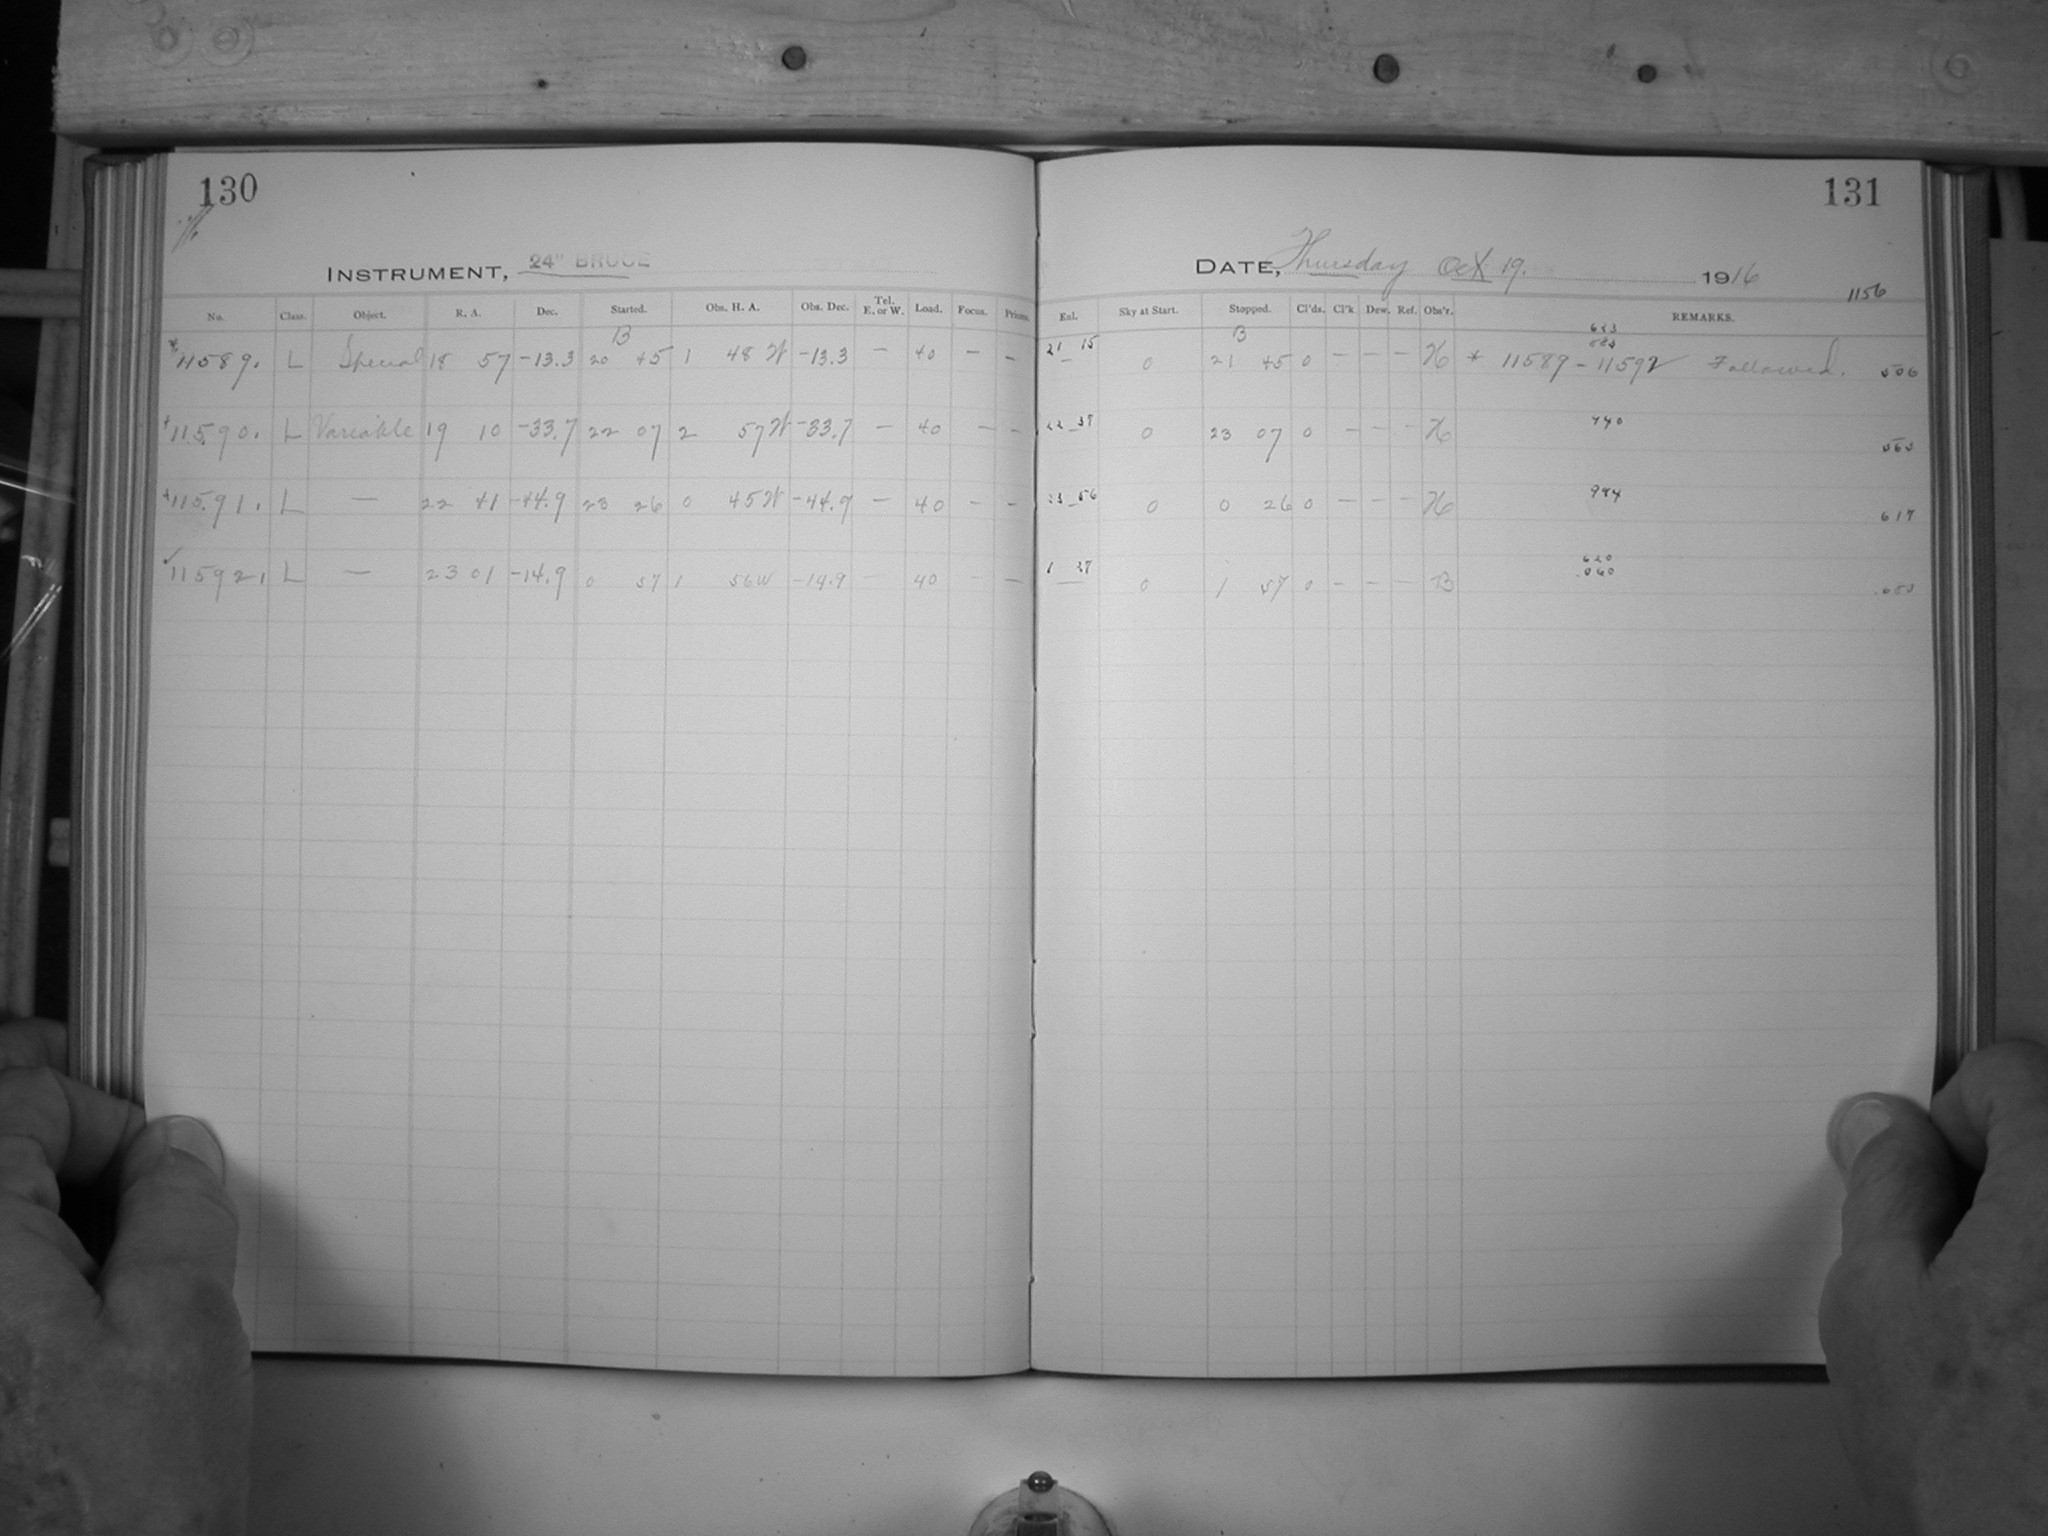 130
INSTRUMENT, 24" BRUCE
No. Class. Object. R. A. Dec. Started. Obs. H. A. Obs. Dec. Tel. E. or W. Load. Focus. Prisms.
B
*11589. L Special 18 57 -13.3 20 45 1 48 W -13.3 — 40 — —
11590. L Variable 19 10 -33.7 22 07 2 57 W -33.7 — 40 — —
11591. L — 22 41 -44.9 23 26 0 45 W -44.9 — 40 — —
11592. L — 23 01 -14.9 0 57 1 56 W -14.9 — 40 — —
131
DATE, Thursday Oct 19. 1916
1156
Exl. Sky at Start. Stopped. Cl'ds. Cl'k Dew. Ref. Obs'r. REMARKS.
B
21 15 0 21 45 0 — — — * 11589 - 11592 Followed. 506
22 37 0 23 07 0 — — — 740 563
23 56 0 0 26 0 — — — 617
1 27 0 1 57 0 — — — B
620
.060